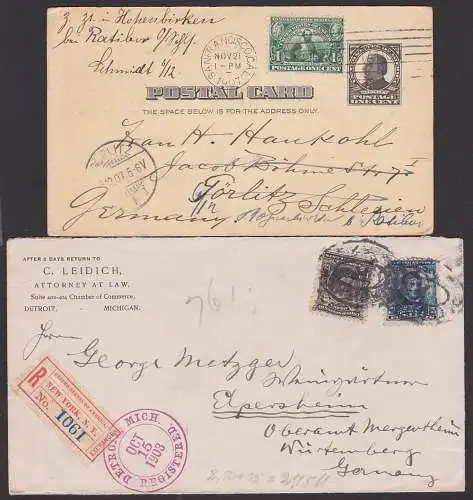 z. Zt. in Hohenbirken
bei Ratibor O/Schl.
Schmidt
SAN FRANCISCO, CAL.
NOV 21
1-PM
1907
POSTAGE ONE CENT
POSTAGE
ONE CENT
POSTAL CARD
THE SPACE BELOW IS FOR THE ADDRESS ONLY.
Frau H. Hankohl
Jacob Böhme Str 7 I
Görlitz Schlesien
Germany
Ratibor
AFTER 5 DAYS RETURN TO
C. LEIDICH,
ATTORNEY AT LAW,
Suite 402-404 Chamber of Commerce,
DETROIT, MICHIGAN.
761
Herrn
George Metzger
Weingärtner
Elpersheim
Oberamt Mergentheim
Würtemberg
Germany
R
NEW YORK, N. Y.
No. 1061
DETROIT, MICH.
OCT
15
1903
REGISTERED